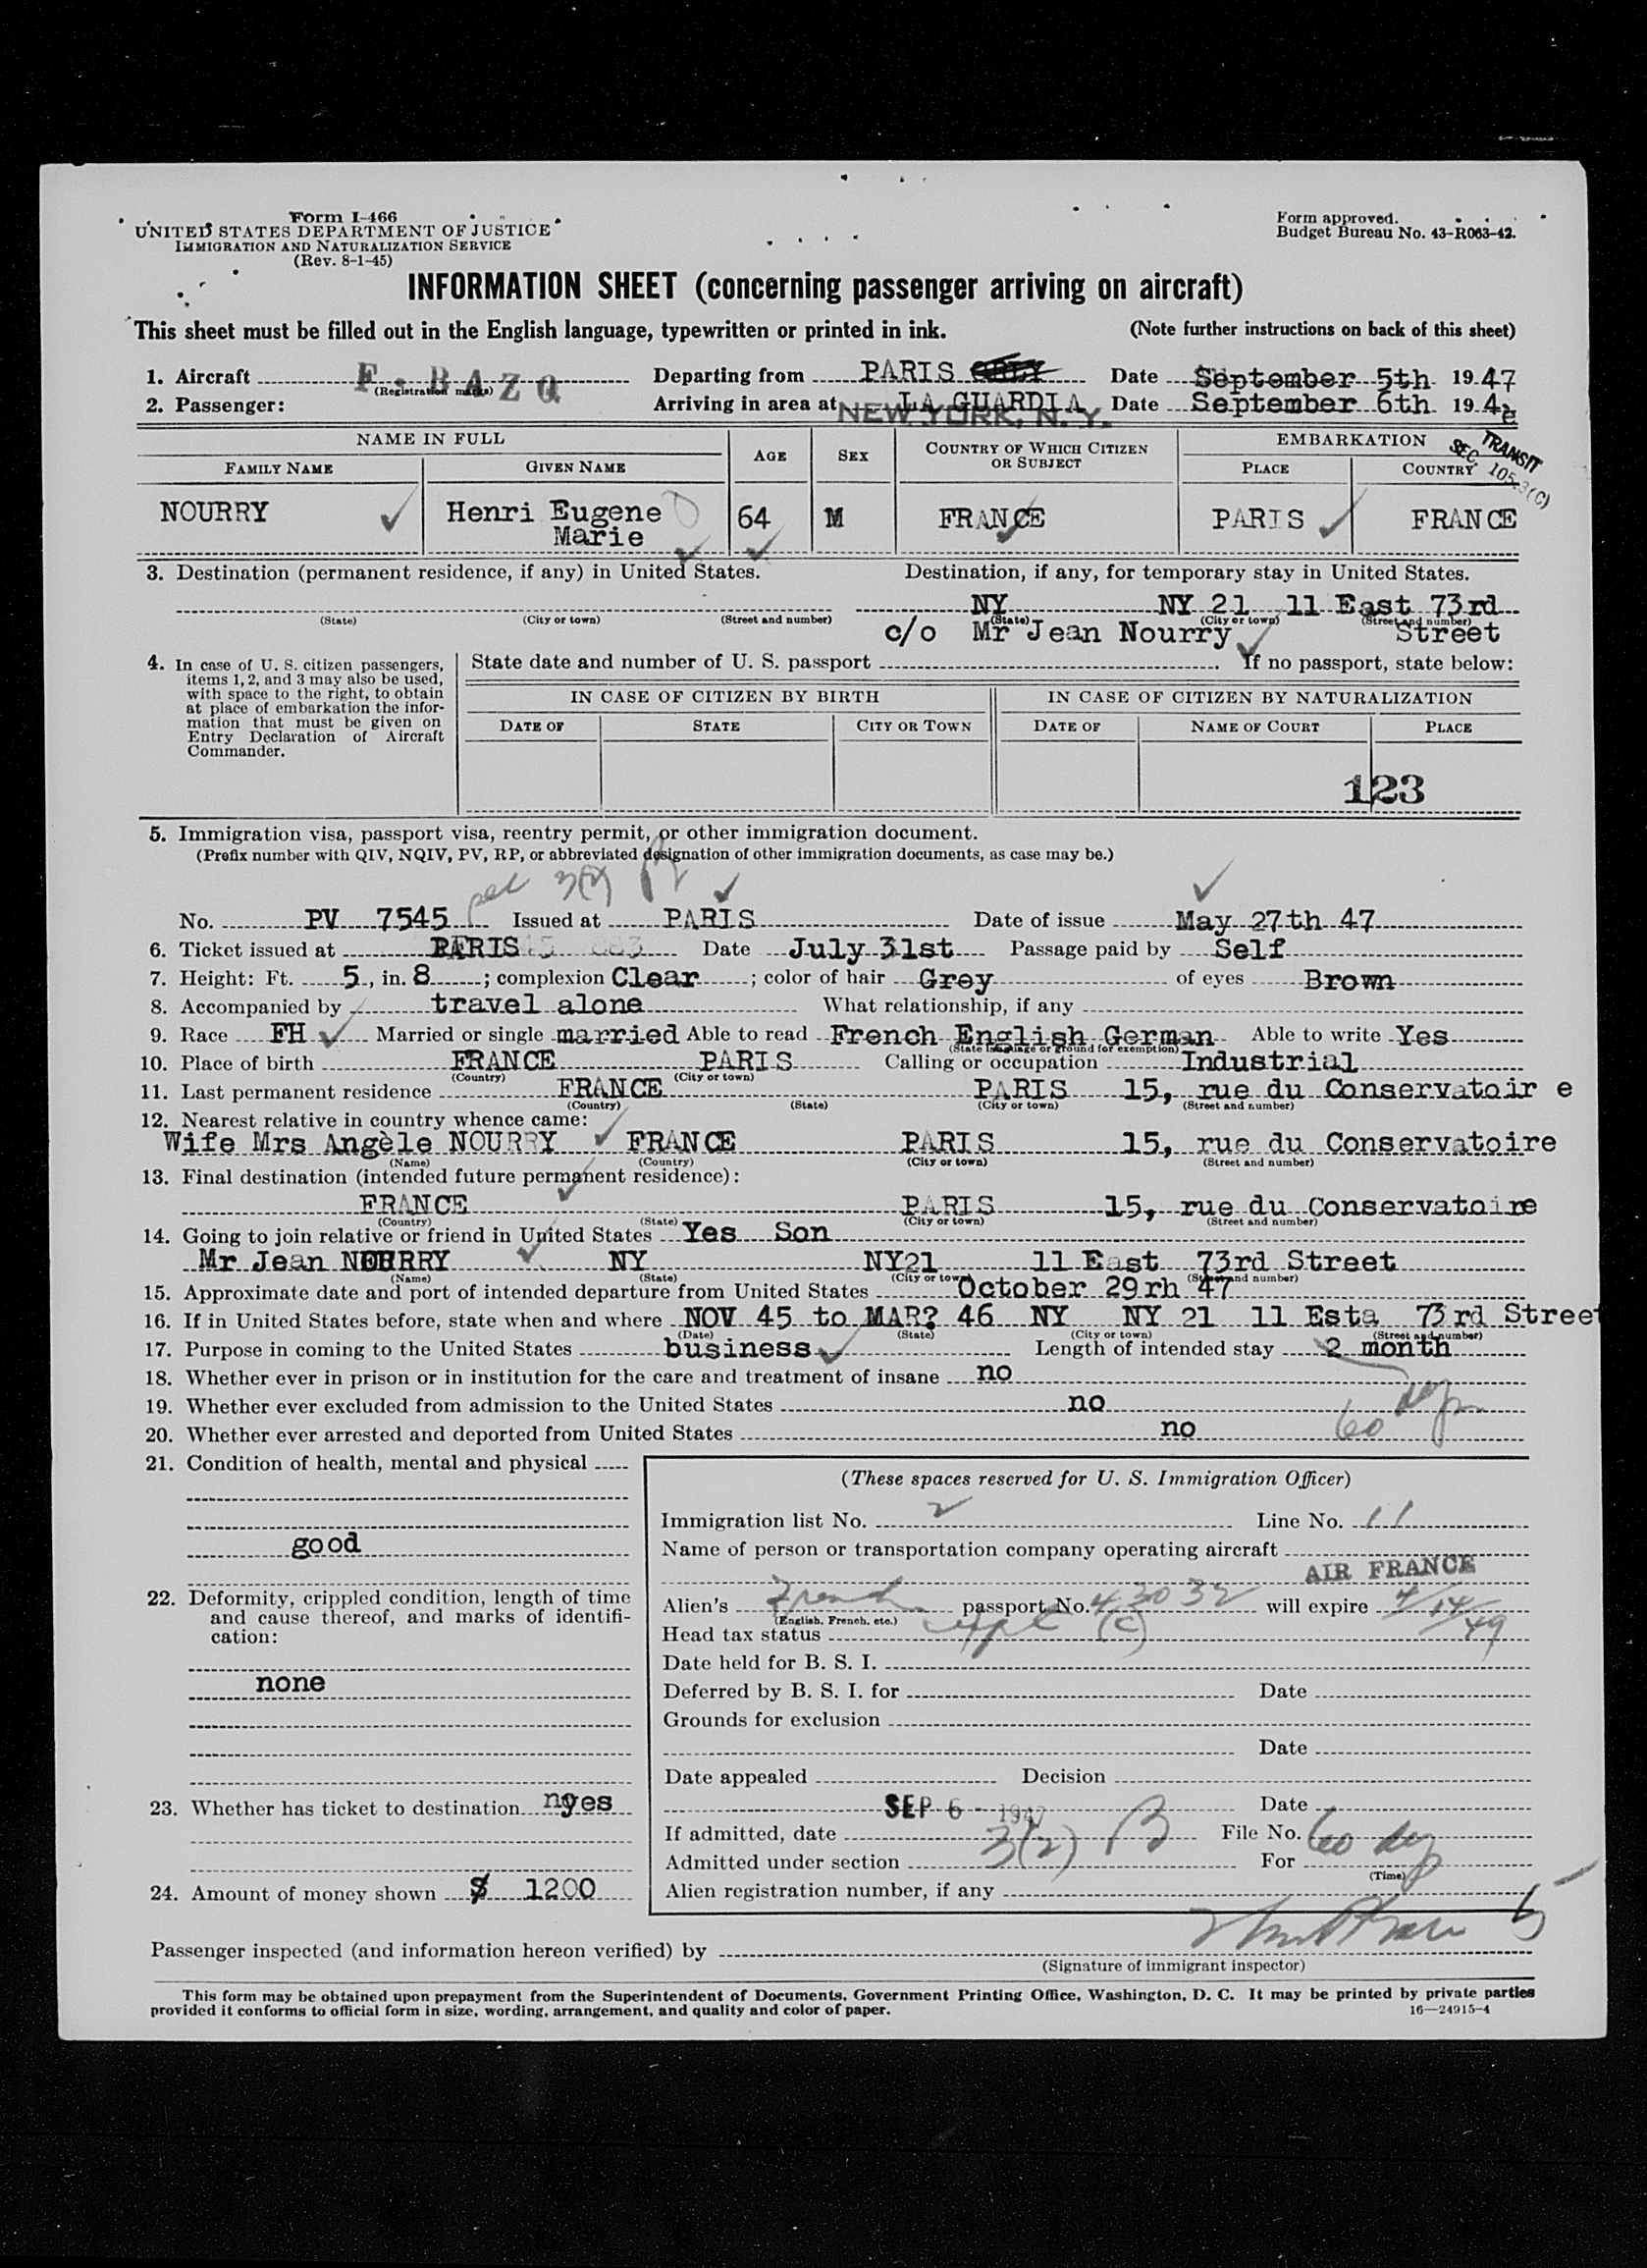 Form I-466
UNITED STATES DEPARTMENT OF JUSTICE
IMMIGRATION AND NATURALIZATION SERVICE
(Rev. 8-1-45)
Form approved.
Budget Bureau No. 43-R063-42.
INFORMATION SHEET (concerning passenger arriving on aircraft)
This sheet must be filled out in the English language, typewritten or printed in ink. (Note further instructions on back of this sheet)
1. Aircraft F-BAZQ Departing from PARIS Date September 5th 1947
(Registration marks)
2. Passenger: Arriving in area at LA GUARDIA Date September 6th 194
NEW YORK, N. Y.
NAME IN FULL AGE SEX COUNTRY OF WHICH CITIZEN OR SUBJECT EMBARKATION
TRANSIT
SEC. 105.3(C)
FAMILY NAME GIVEN NAME PLACE COUNTRY
NOURRY Henri Eugene 64 M FRANCE PARIS FRANCE
Marie
3. Destination (permanent residence, if any) in United States. Destination, if any, for temporary stay in United States.
NY NY 21 11 East 73rd
(State) (City or town) (Street and number) (State) (City or town) (Street and number)
c/o Mr Jean Nourry Street
4. In case of U. S. citizen passengers,
items 1, 2, and 3 may also be used,
with space to the right, to obtain
at place of embarkation the infor-
mation that must be given on
Entry Declaration of Aircraft
Commander.
State date and number of U. S. passport . If no passport, state below:
IN CASE OF CITIZEN BY BIRTH IN CASE OF CITIZEN BY NATURALIZATION
DATE OF STATE CITY OR TOWN DATE OF NAME OF COURT PLACE
123
5. Immigration visa, passport visa, reentry permit, or other immigration document.
(Prefix number with QIV, NQIV, PV, RP, or abbreviated designation of other immigration documents, as case may be.)
3(2)
No. PV 7545 Issued at PARIS Date of issue May 27th 47
6. Ticket issued at PARIS Date July 31st Passage paid by Self
7. Height: Ft. 5, in. 8; complexion Clear; color of hair Grey of eyes Brown
8. Accompanied by travel alone What relationship, if any
9. Race FH Married or single married Able to read French English German Able to write Yes
(State language or ground for exemption)
10. Place of birth FRANCE PARIS Calling or occupation Industrial
(Country) (City or town)
11. Last permanent residence FRANCE PARIS 15, rue du Conservatoir e
(Country) (State) (City or town) (Street and number)
12. Nearest relative in country whence came:
Wife Mrs Angèle NOURRY FRANCE PARIS 15, rue du Conservatoire
(Name) (Country) (City or town) (Street and number)
13. Final destination (intended future permanent residence):
FRANCE PARIS 15, rue du Conservatoire
(Country) (State) (City or town) (Street and number)
14. Going to join relative or friend in United States Yes Son
Mr Jean NOURRY NY NY21 11 East 73rd Street
(Name) (State) (City or town) (Street and number)
15. Approximate date and port of intended departure from United States October 29rh 47
16. If in United States before, state when and where NOV 45 to MAR? 46 NY NY 21 11 Esta 73rd Street
(Date) (State) (City or town) (Street and number)
17. Purpose in coming to the United States business Length of intended stay 2 month
18. Whether ever in prison or in institution for the care and treatment of insane no
19. Whether ever excluded from admission to the United States no
20. Whether ever arrested and deported from United States no 60
21. Condition of health, mental and physical
good
22. Deformity, crippled condition, length of time
and cause thereof, and marks of identifi-
cation:
none
23. Whether has ticket to destination yes
24. Amount of money shown $ 1200
(These spaces reserved for U. S. Immigration Officer)
Immigration list No. 2 Line No. 11
Name of person or transportation company operating aircraft
AIR FRANCE
Alien's French passport No. 43032 will expire 7/14/49
(English, French, etc.)
Head tax status (c)
Date held for B. S. I.
Deferred by B. S. I. for Date
Grounds for exclusion
Date
Date appealed Decision
SEP 6 - 1947 Date
If admitted, date File No.
Admitted under section 3(2) B For 60
(Time)
Alien registration number, if any
Passenger inspected (and information hereon verified) by
(Signature of immigrant inspector)
This form may be obtained upon prepayment from the Superintendent of Documents, Government Printing Office, Washington, D. C. It may be printed by private parties
provided it conforms to official form in size, wording, arrangement, and quality and color of paper. 16—24915-4